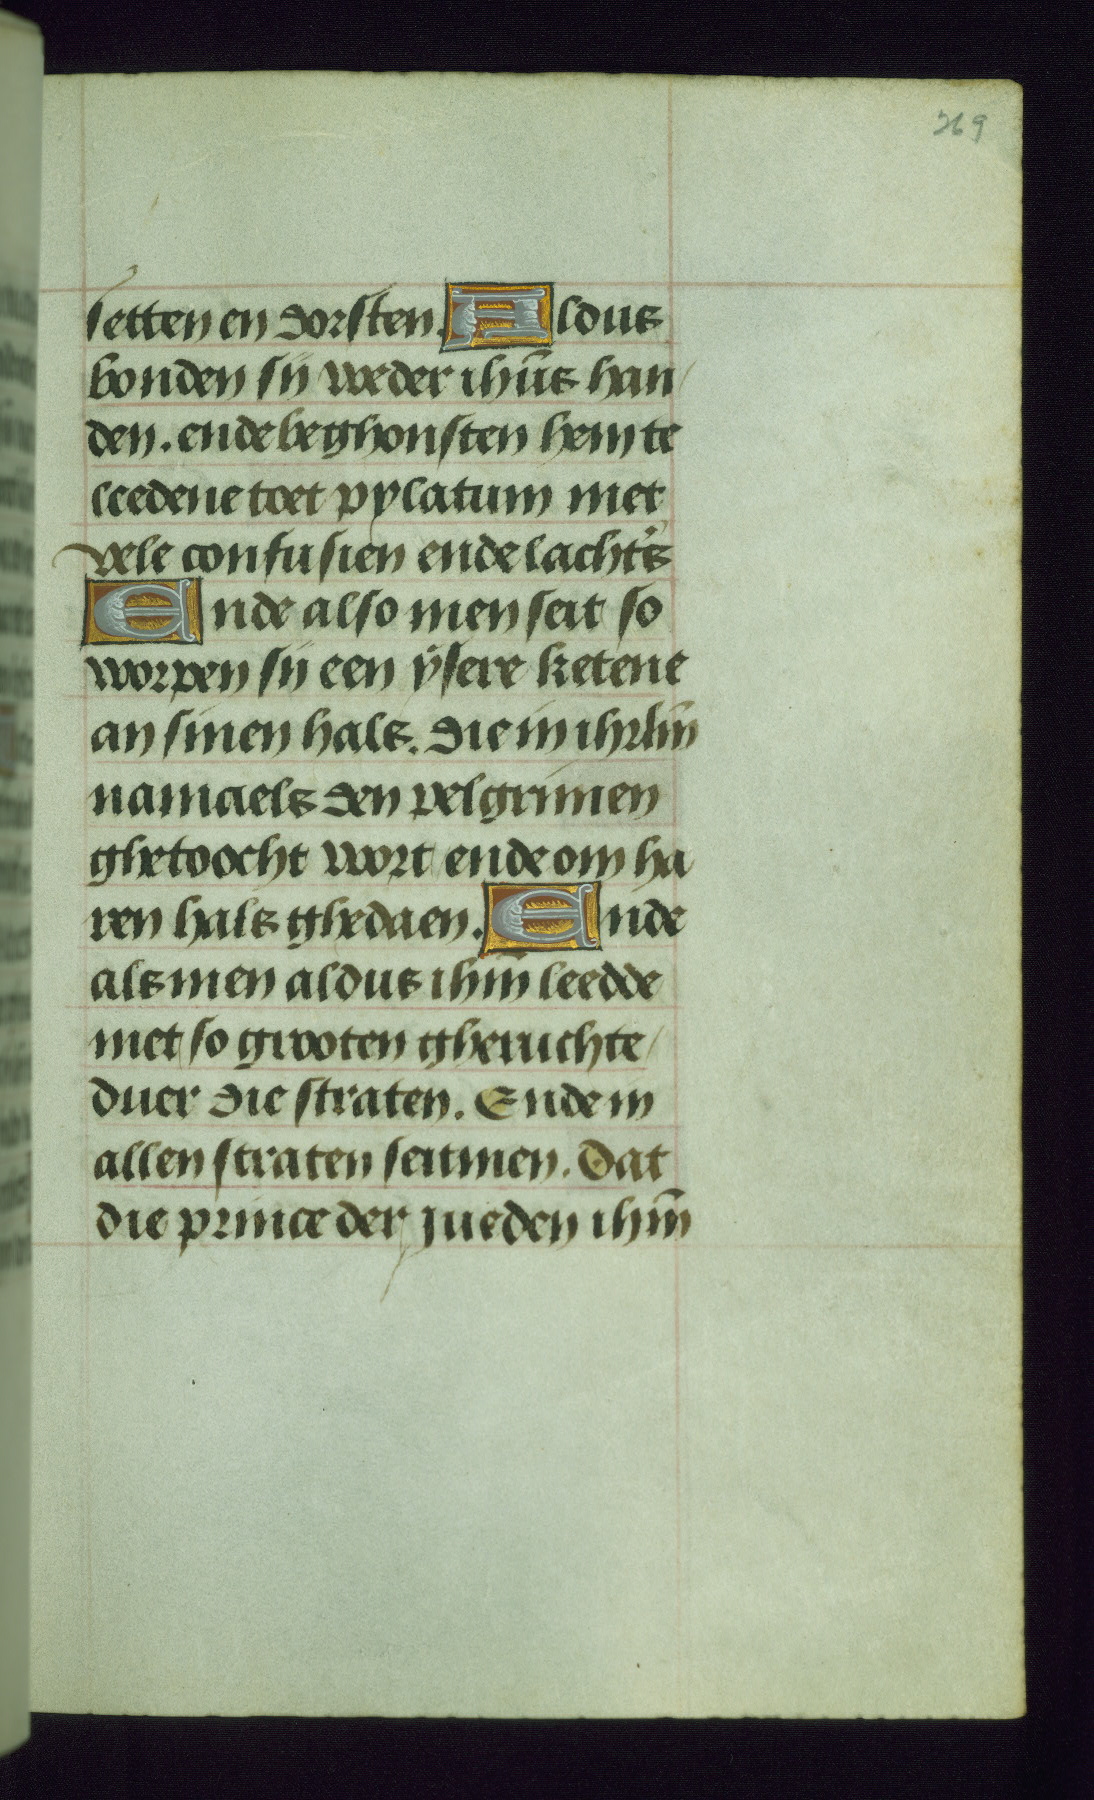 269
setten en dorsten. Aldus
bonden sij weder ihūs han/
den. ende beghonsten hem te
leedene toet pylatum met
vele confusien ende lacht's
Ende also men seit so
worpen sij een ÿsere ketene
an sinen hals. Die in ihrlm̄
namaels den pelgrimen
ghetoocht wort ende om ha
ren hals ghedaen. Ende
als men aldus ihm̄ leedde
met so grooten gheruchte/
duer die straten. Ende in
allen straten seitmen. Dat
die prince der Jueden ihm̄